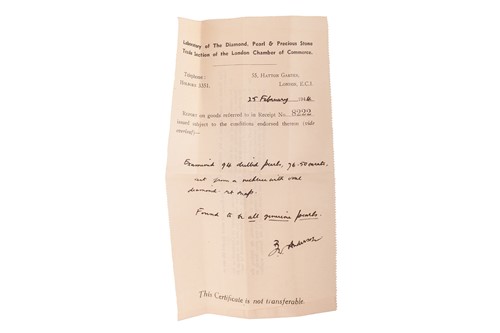 Laboratory of The Diamond, Pearl & Precious Stone
Trade Section of the London Chamber of Commerce.
Telephone:
Holborn 3351.
15, Hatton Garden,
London, E.C.1.
25 February
Report on goods referred to in Receipt No. 8222
issued subject to the conditions endorsed thereon (vide
overleaf):—
Examined 94 drilled pearls, 76.50 carats,
set from a necklace with oval
diamond-set snap.
Found to be all genuine pearls.
Anderson
This Certificate is not transferable.